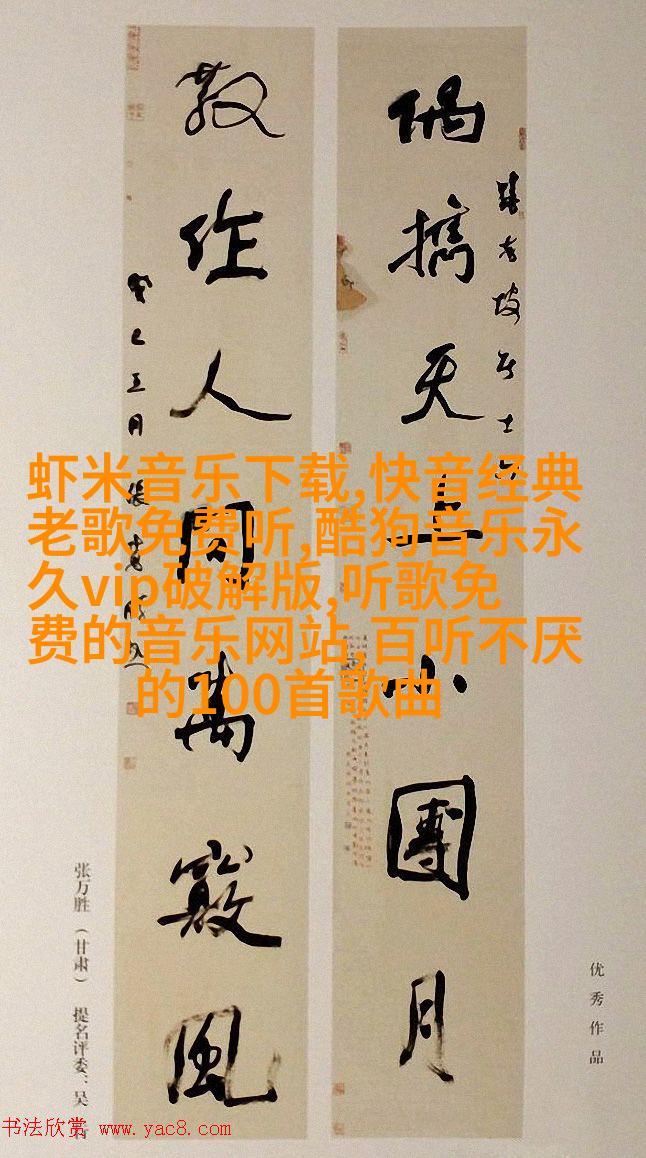 虾米音乐下载,快音经典
老歌免费听,酷狗音乐永
久vip破解版,听歌免
费的音乐网站,百听不厌
的100首歌曲
偶擕天上小團月
坡居士
散作人間萬竅風
癸巳五月張萬勝
优秀作品
张万胜（甘肃） 提名评委：吴
书法欣赏 www.yac8.com